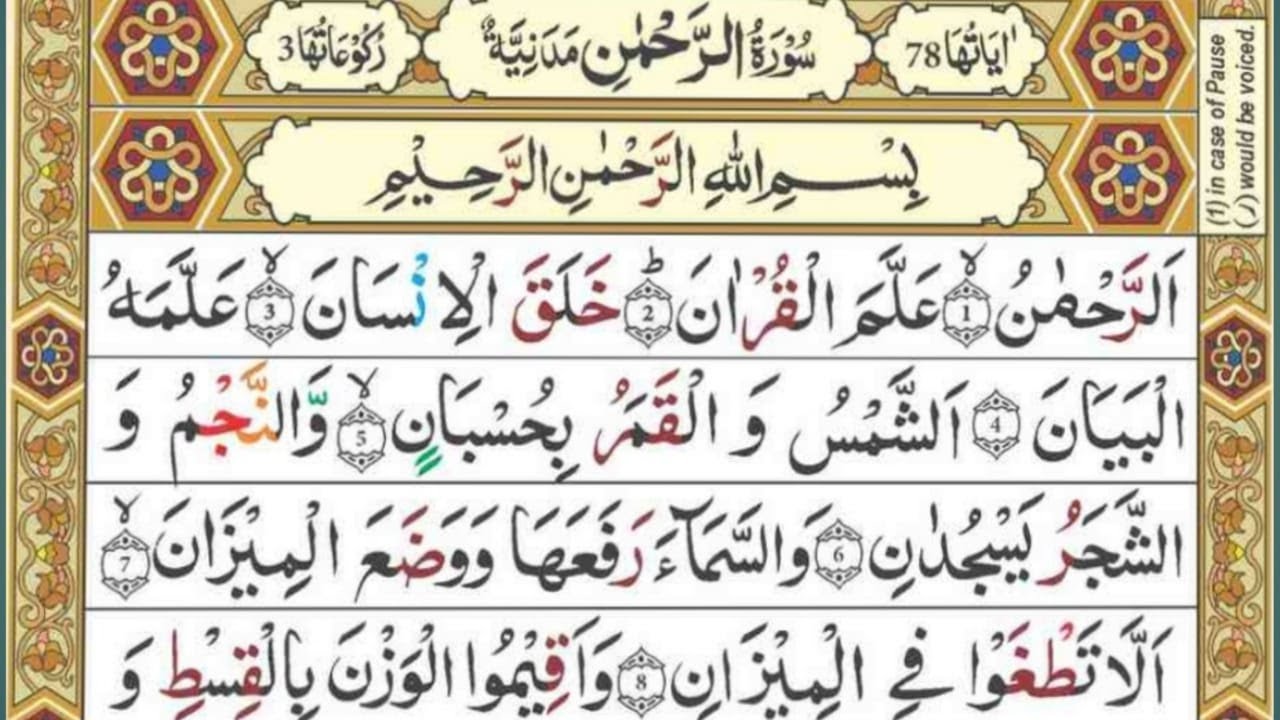 اٰيَاتُهَا 78 سُوْرَةُ الرَّحْمٰنِ مَدَنِيَّةٌ رُكُوْعَاتُهَا 3
بِسْمِ اللّٰهِ الرَّحْمٰنِ الرَّحِيْمِ
اَلرَّحْمٰنُ ۙ1 عَلَّمَ الْقُرْاٰنَ ؕ2 خَلَقَ الْاِنْسَانَ ۙ3 عَلَّمَهُ
الْبَيَانَ 4 اَلشَّمْسُ وَ الْقَمَرُ بِحُسْبَانٍ ۙ5 وَّالنَّجْمُ وَ
الشَّجَرُ يَسْجُدٰنِ 6 وَالسَّمَآءَ رَفَعَهَا وَوَضَعَ الْمِيْزَانَ ۙ7
اَلَّا تَطْغَوْا فِي الْمِيْزَانِ 8 وَاَقِيْمُوا الْوَزْنَ بِالْقِسْطِ وَ
(1) in case of Pause
(ر) would be voiced.